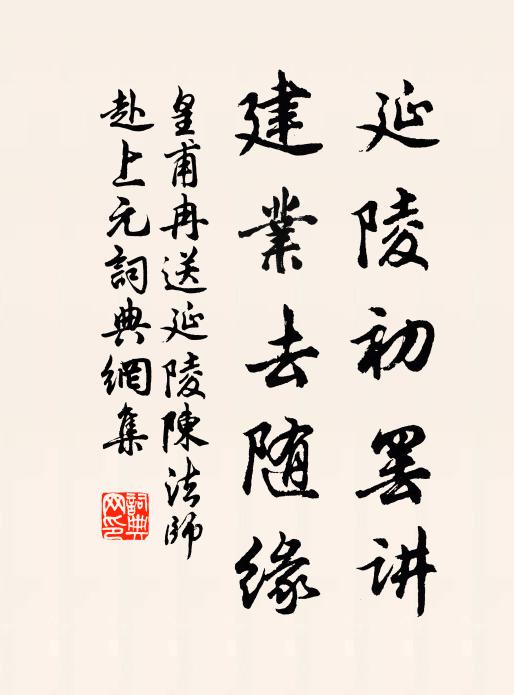 延陵初罢讲
建業去随緣
皇甫冉送延陵陳法師
赴上元詞典網集
詞典網印